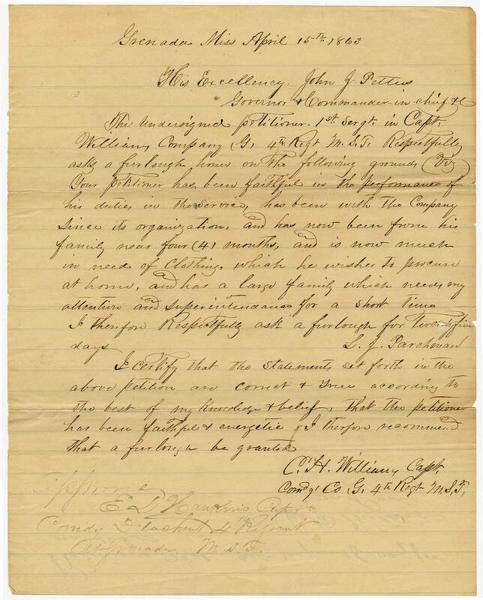 Grenada Miss April 15th 1863
His Excellency John J Pettus
Governor & Commander in chief &c
The undersigned petitioner 1st Sergt. in Capt.
Williams Company G. 4th Regt M.S.T. Respectfully
asks a furlough home on the following grounds
Your petitioner has been faithful in the performance of
his duties in the service, has been with the Company
since its organization, and has now been from his
family near four (4) months, and is now much
in need of Clothing which he wishes to procure
at home, and has a large family which needs my
attention and Superintendance for a short time
I therfore Respectfully ask a furlough for twenty five
days
L. J. Parchman
I certify that the statements set forth in the
above petition are correct & true according to
the best of my knowledge & belief, that the petitioner
has been faithful & energetic & I therfore recommend
that a furlough be granted
C. H. Williams, Capt.
Comdg Co. G. 4th Regt M.S.T.
Approved
E D Hawkins Capt
Comdg Detachment 4 Regiment
M.S.T.